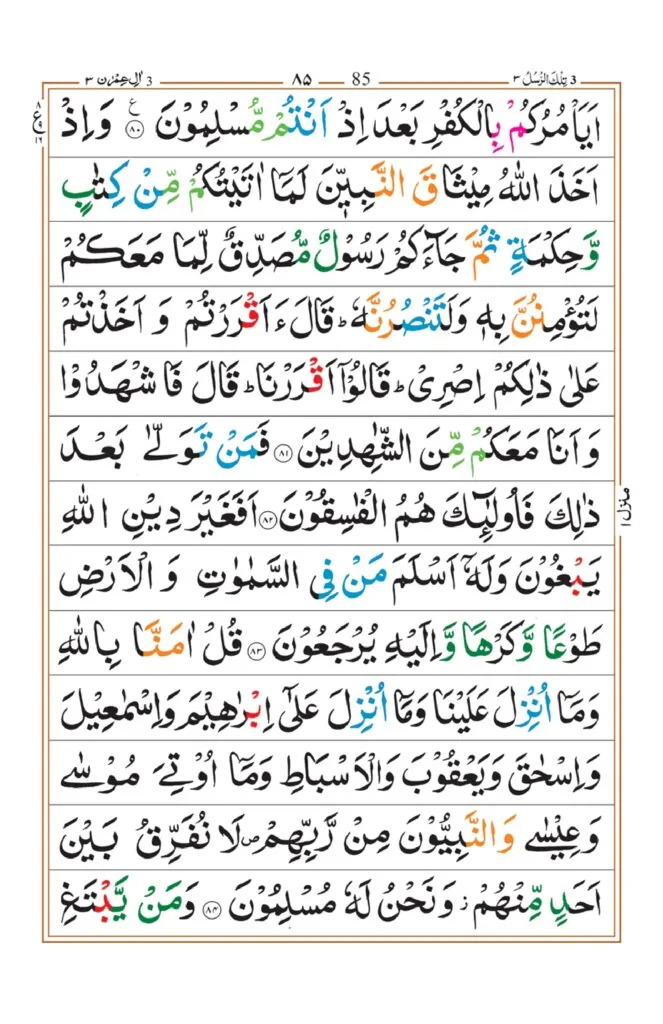 3 تِلْكَ الرُّسُلُ ٣
85 ٨٥
3 اٰلِ عِمْرٰن ٣
اَيَاْمُرُكُمْ بِالْكُفْرِ بَعْدَ اِذْ اَنْتُمْ مُّسْلِمُوْنَ ﴿٨٠﴾ ع وَ اِذْ
اَخَذَ اللّٰهُ مِيْثَاقَ النَّبِيّٖنَ لَمَاۤ اٰتَيْتُكُمْ مِّنْ كِتٰبٍ
وَّحِكْمَةٍ ثُمَّ جَآءَكُمْ رَسُوْلٌ مُّصَدِّقٌ لِّمَا مَعَكُمْ
لَتُؤْمِنُنَّ بِهٖ وَلَتَنْصُرُنَّهٗ ؕ قَالَ ءَاَقْرَرْتُمْ وَ اَخَذْتُمْ
عَلٰى ذٰلِكُمْ اِصْرِىْ ؕ قَالُوْۤا اَقْرَرْنَا ؕ قَالَ فَاشْهَدُوْا
وَ اَنَا مَعَكُمْ مِّنَ الشّٰهِدِيْنَ ﴿٨١﴾ فَمَنْ تَوَلّٰى بَعْدَ
ذٰلِكَ فَاُولٰٓئِكَ هُمُ الْفٰسِقُوْنَ ﴿٨٢﴾ اَفَغَيْرَ دِيْنِ اللّٰهِ
يَبْغُوْنَ وَلَهٗۤ اَسْلَمَ مَنْ فِى السَّمٰوٰتِ وَ الْاَرْضِ
طَوْعًا وَّكَرْهًا وَّاِلَيْهِ يُرْجَعُوْنَ ﴿٨٣﴾ قُلْ اٰمَنَّا بِاللّٰهِ
وَمَاۤ اُنْزِلَ عَلَيْنَا وَمَاۤ اُنْزِلَ عَلٰٓى اِبْرٰهِيْمَ وَاِسْمٰعِيْلَ
وَاِسْحٰقَ وَيَعْقُوْبَ وَالْاَسْبَاطِ وَمَاۤ اُوْتِىَ مُوْسٰى
وَعِيْسٰى وَالنَّبِيُّوْنَ مِنْ رَّبِّهِمْ ص لَا نُفَرِّقُ بَيْنَ
اَحَدٍ مِّنْهُمْ ز وَنَحْنُ لَهٗ مُسْلِمُوْنَ ﴿٨٤﴾ وَمَنْ يَّبْتَغِ
٨
ع ٩
١٦
منزل ١